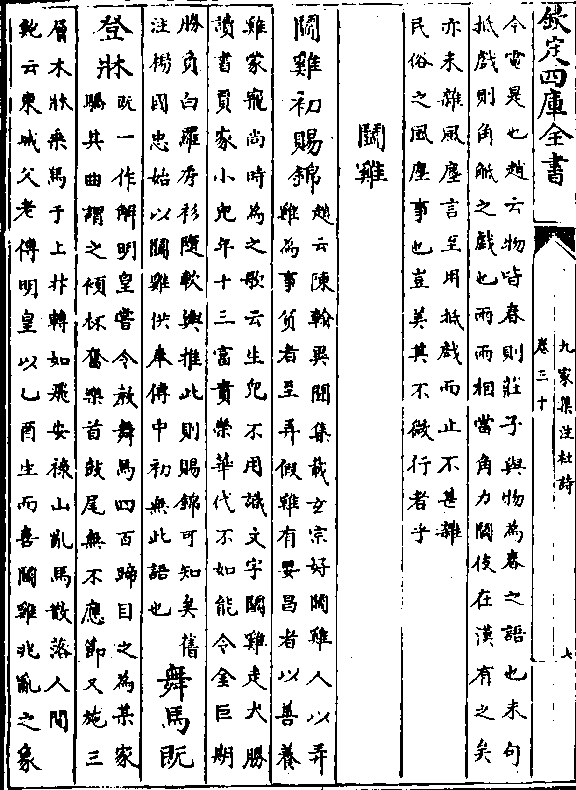 欽定四庫全書
九家集注杜詩
卷三十
七
今霄是也趙云物皆春則莊子與物為春之語也末句
抵戲則角觝之戲也兩兩相當角力鬭伎在漢有之矣
亦未離風塵言至用抵戲而止不甚離
民俗之風塵事也豈美其不微行者乎
鬭雞
鬭雞初賜錦
趙云陳翰異聞集載玄宗好鬭雞人以弄
雞為事貧者至弄假雞有昌者以善養
雞家寵尚時為之歌云生兒不用識文字鬭雞走犬勝
讀書賈家小兒年十三富貴榮華代不如能令金巨期
勝負白羅衫隨軟輿推此則賜錦可知矣舊
注楊國忠始以鬭雞供奉傳中初無此語也
舞馬既
登牀
既一作解明皇嘗令教舞馬四百蹄目之為某家
驕其曲謂之傾杯奮樂首鼓尾無不應節又施三
層木牀乘馬于上抃轉如飛安祿山亂馬散落人間
鮑云東城父老傳明皇以乙酉生而喜鬭雞兆亂之象